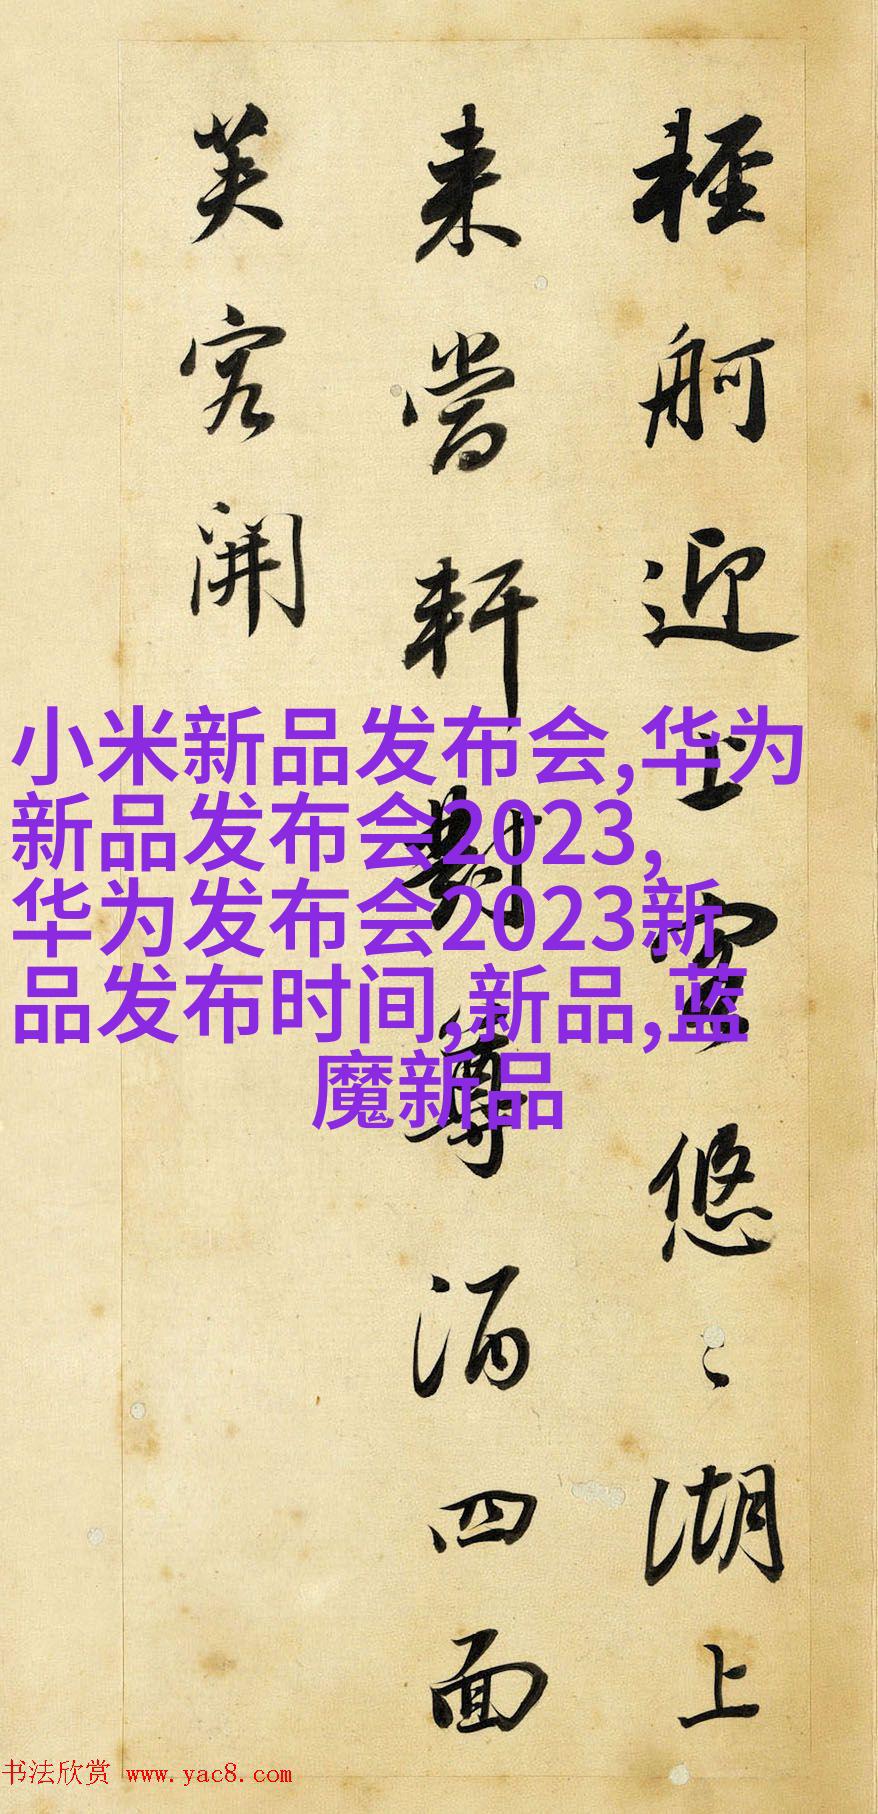 輕舸迎上客悠〻湖上
来當軒對尊酒四面
芙容開
小米新品发布会,华为
新品发布会2023,
华为发布会2023新
品发布时间,新品,蓝
魔新品
书法欣赏 www.yac8.com